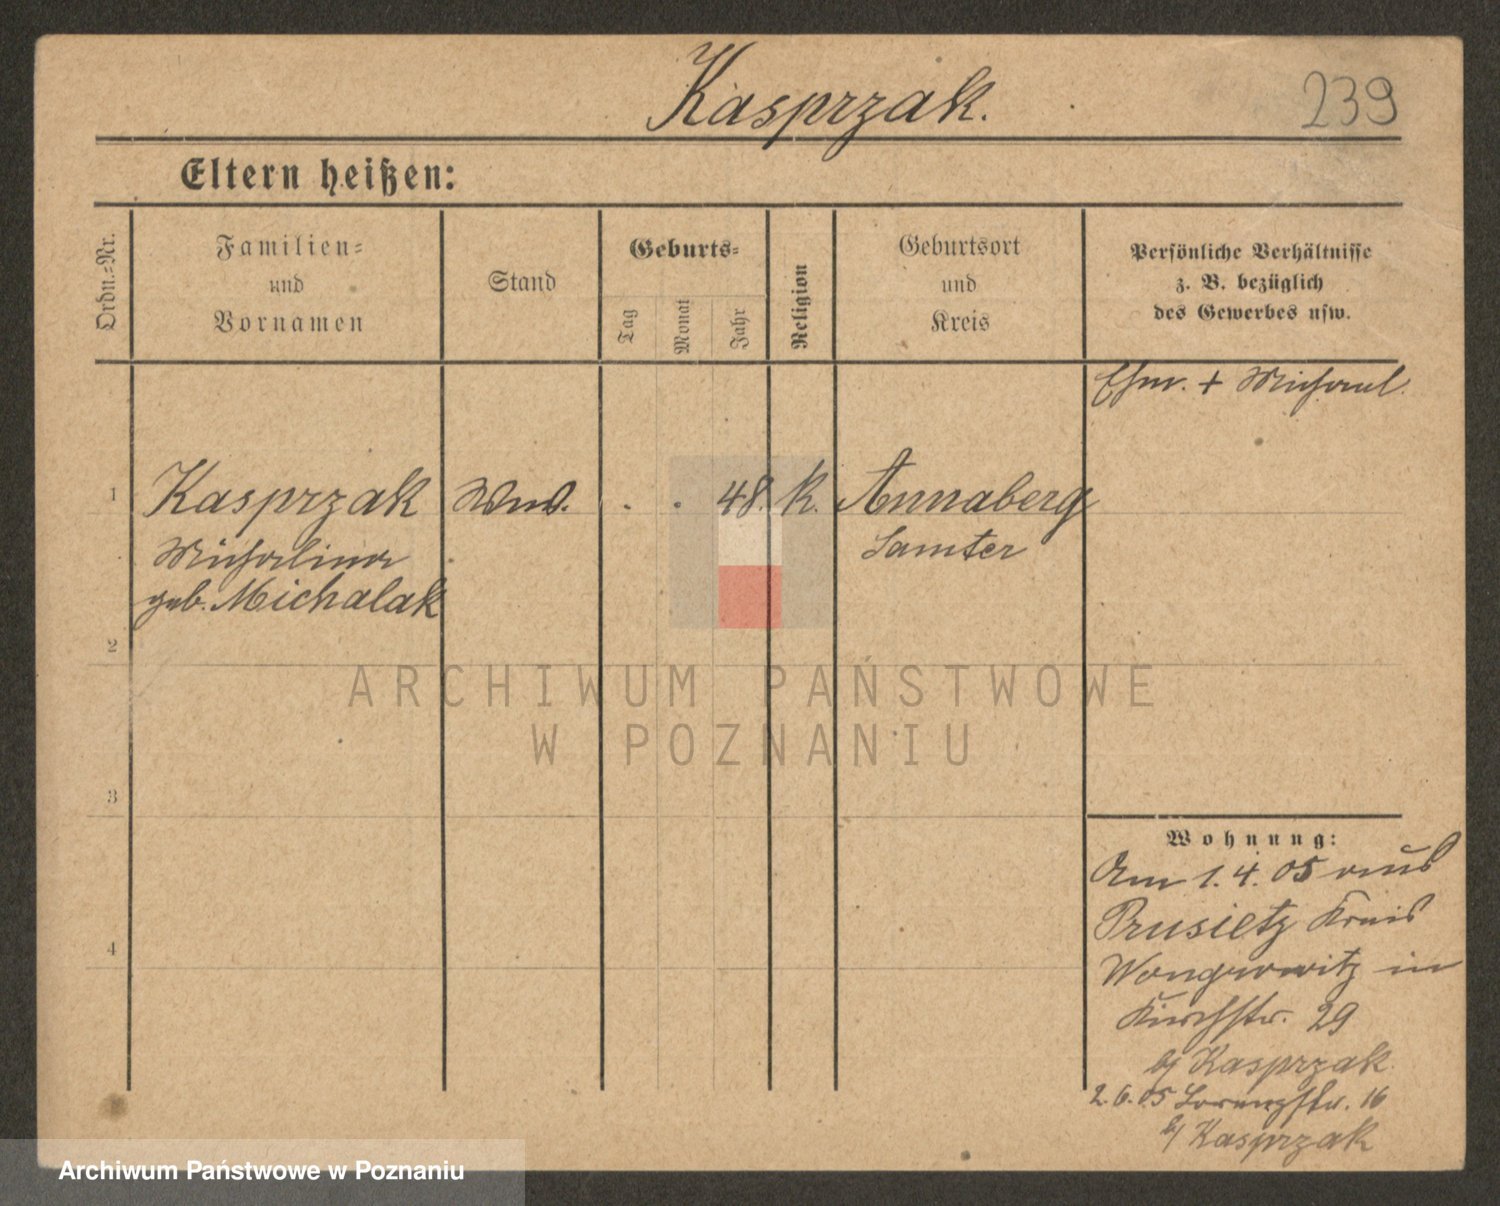 Kasprzak.
239
Eltern heißen:
Ordn.=Nr.
Familien=
und
Vornamen
Stand
Geburts=
Tag
Monat
Jahr
Religion
Geburtsort
und
Kreis
Persönliche Verhältnisse
z. B. bezüglich
des Gewerbes usw.
Ehm. + Michael.
1
Kasprzak
Michalina
geb. Michalak
Wwe.
. . 48. k.
Annaberg
Samter
2
ARCHIWUM PAŃSTWOWE
W POZNANIU
3
4
Wohnung:
Am 1.4.05 aus
Prusietz Kreis
Wongrowitz in
Kirchstr. 29
b/ Kasprzak
2.6.05 Lorenzstr. 16
b/ Kasprzak
Archiwum Państwowe w Poznaniu